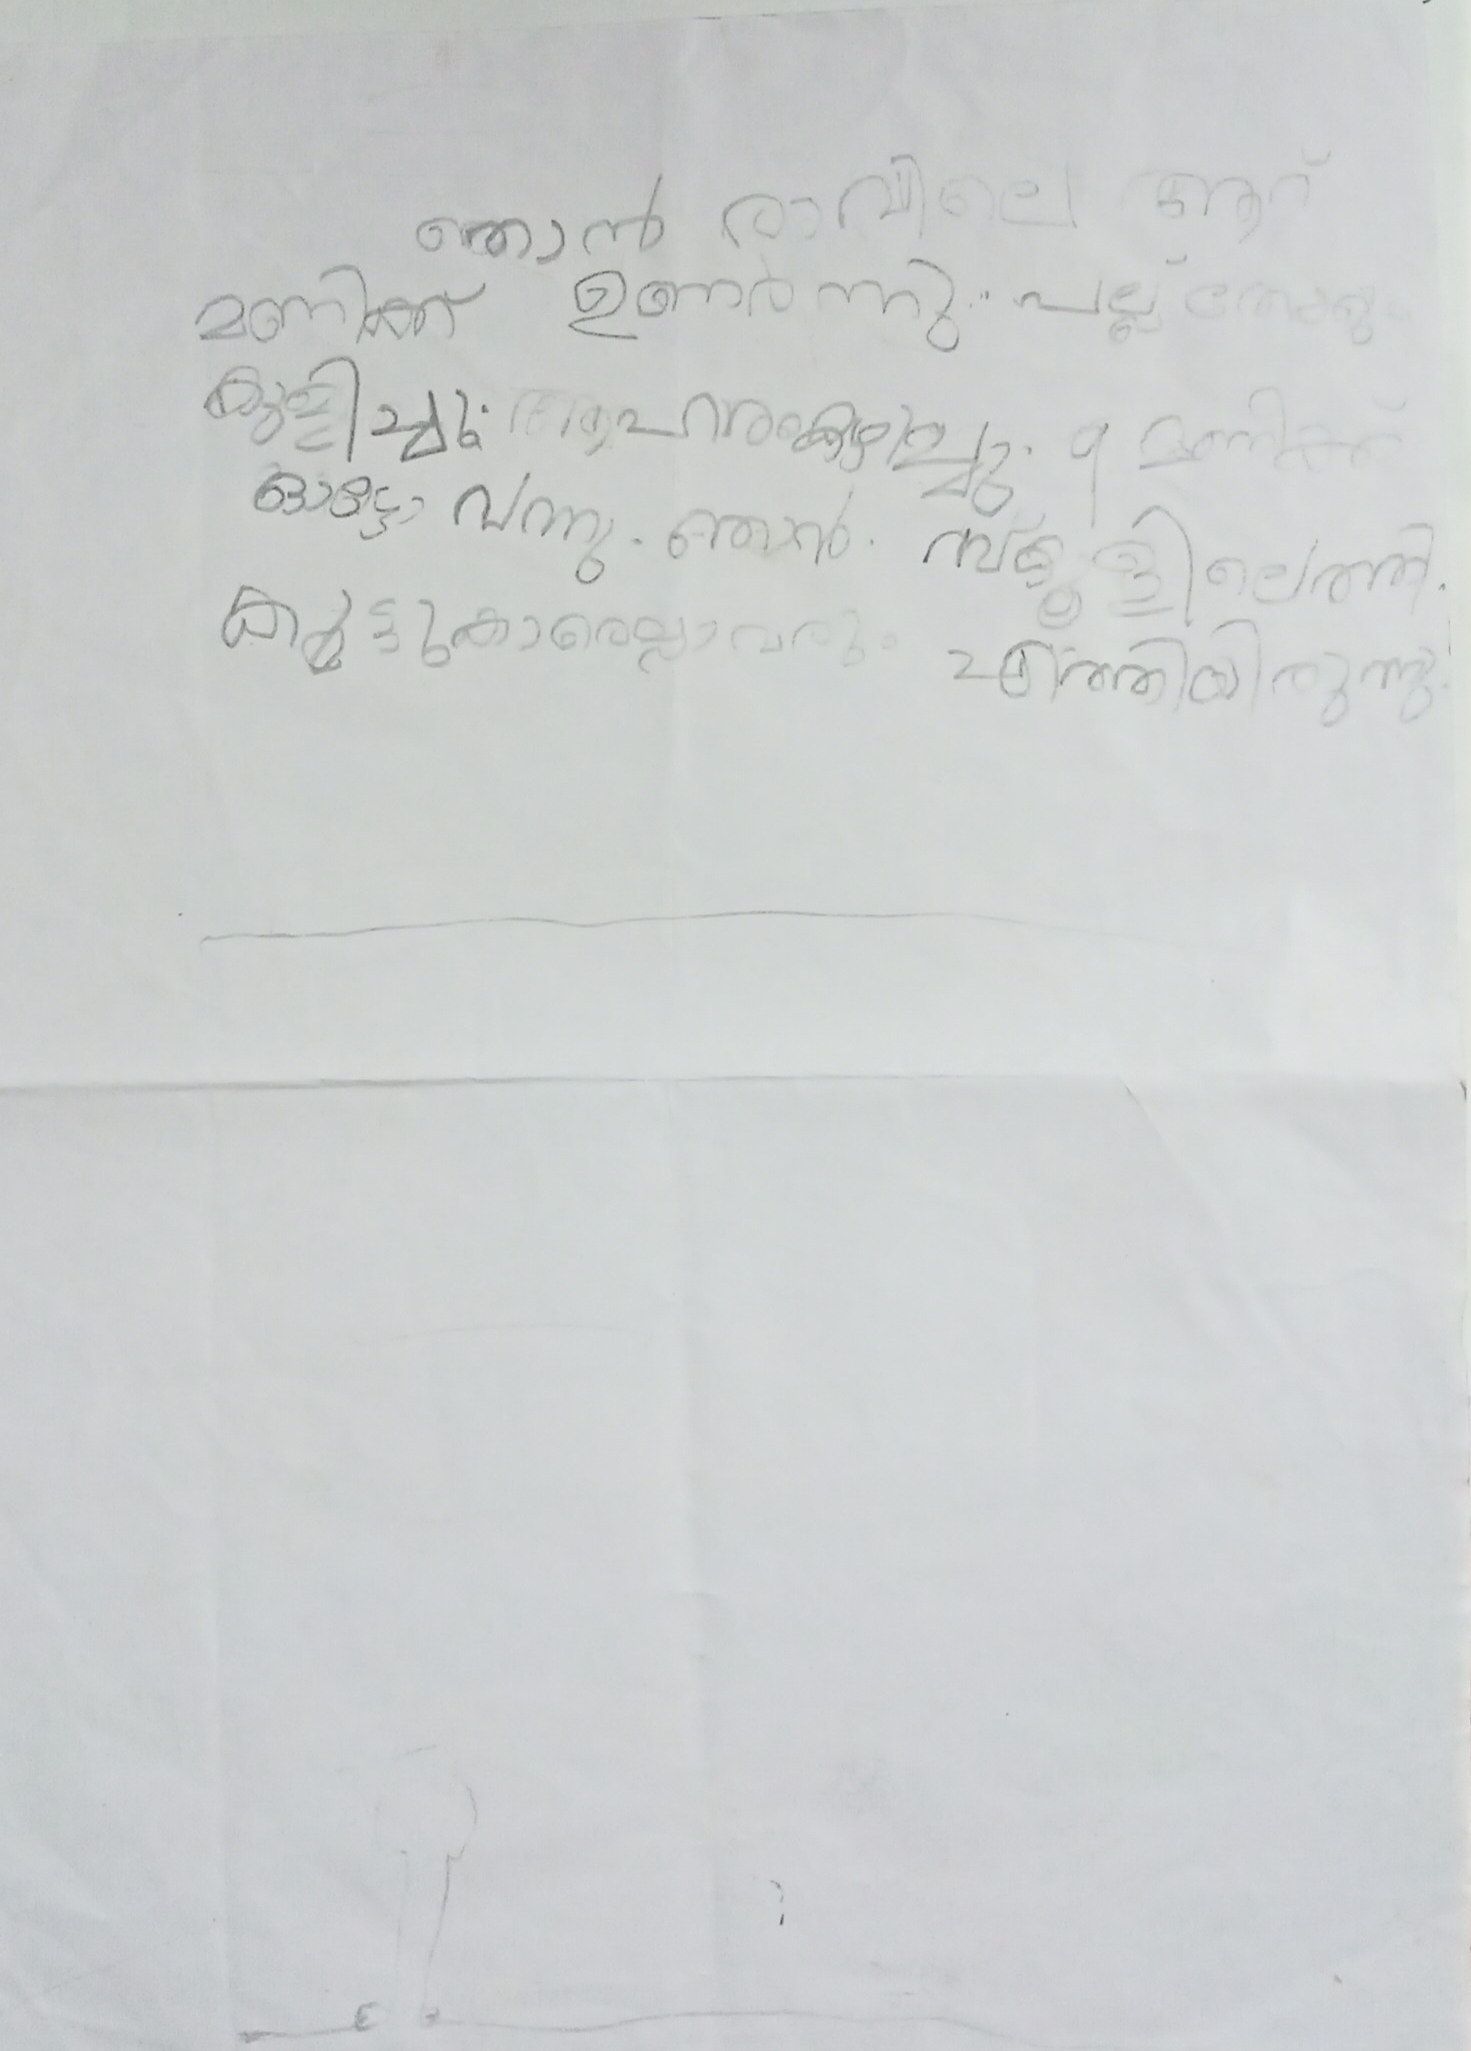 ഞാൻ രാവിലെ ആറ്
മണിക്ക് ഉണർന്നു. പല്ല്
കുളിച്ചു. ആഹാരംകഴിച്ചു. 9 മണിക്ക്
ഓട്ടോ വന്നു. ഞാൻ. സ്കൂളിലെത്തി.
കൂട്ടുകാരെല്ലാവരും എത്തിയിരുന്നു.